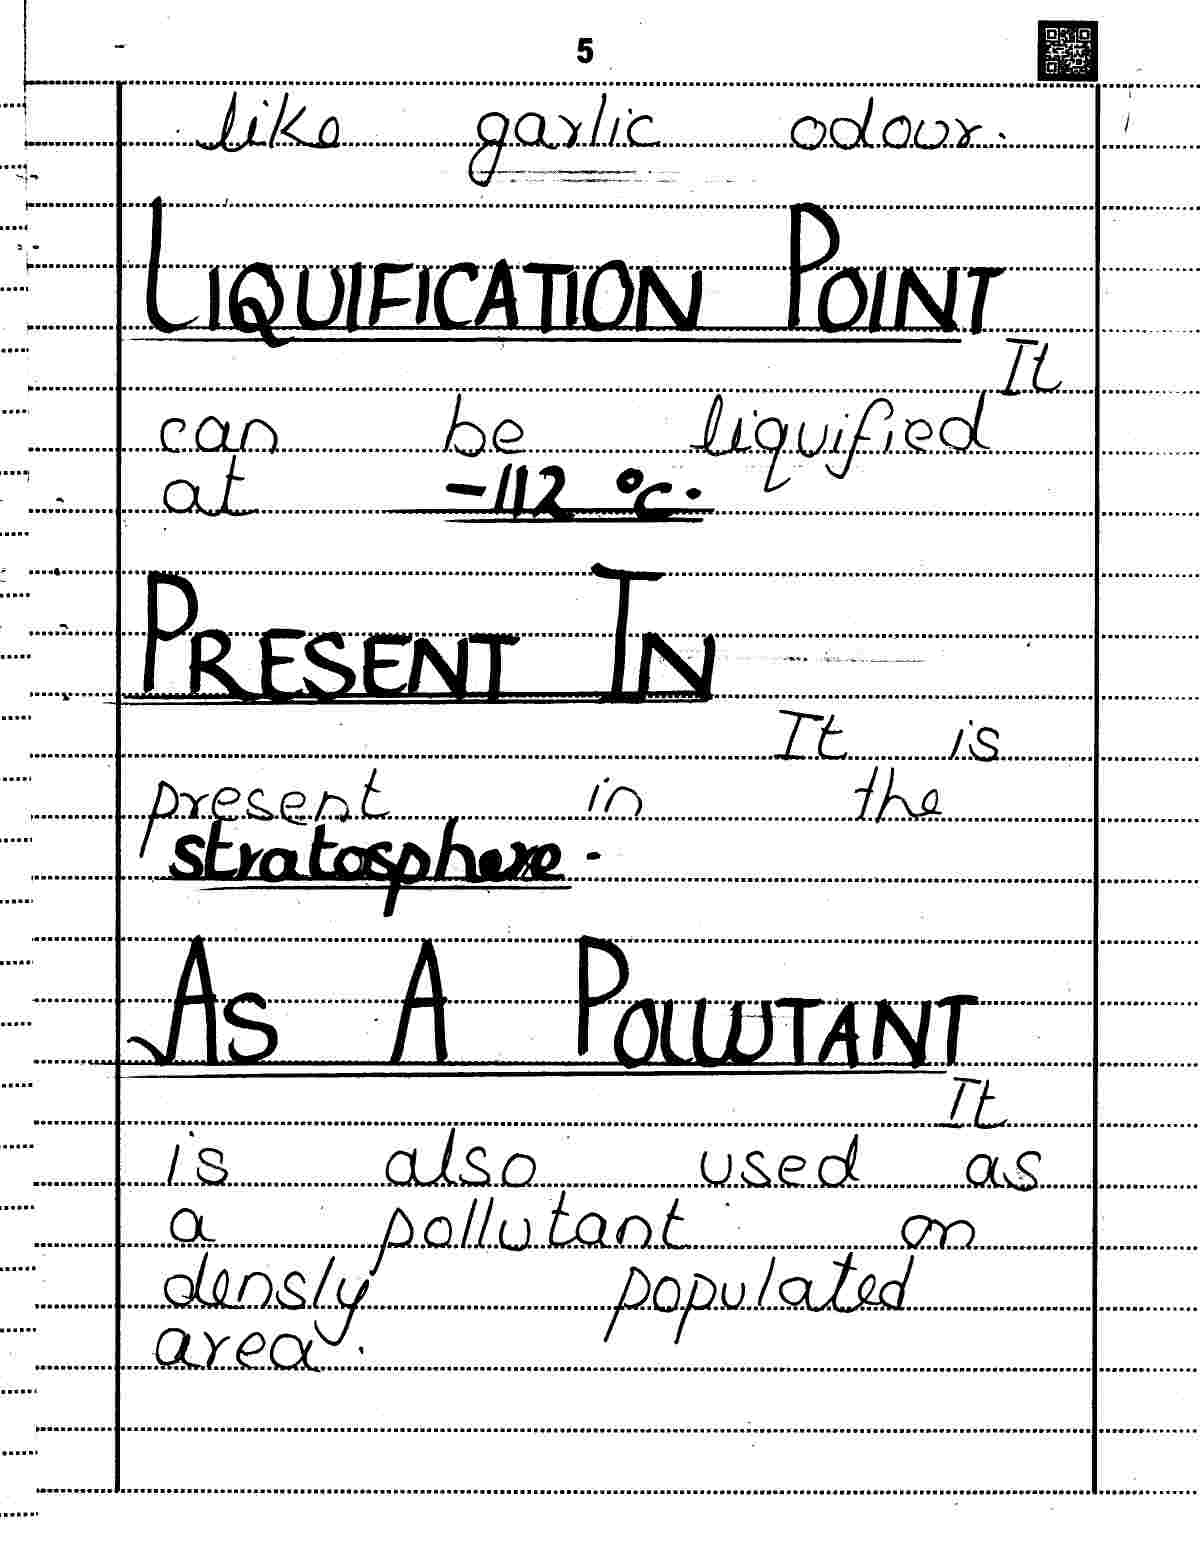 5
like garlic odour.
LIQUIFICATION POINT
It
can be liquified
at -112 °c.
PRESENT IN
It is
present in the
stratosphere.
AS A POLLUTANT
It
is also used as
a pollutant on
densly populated
area.